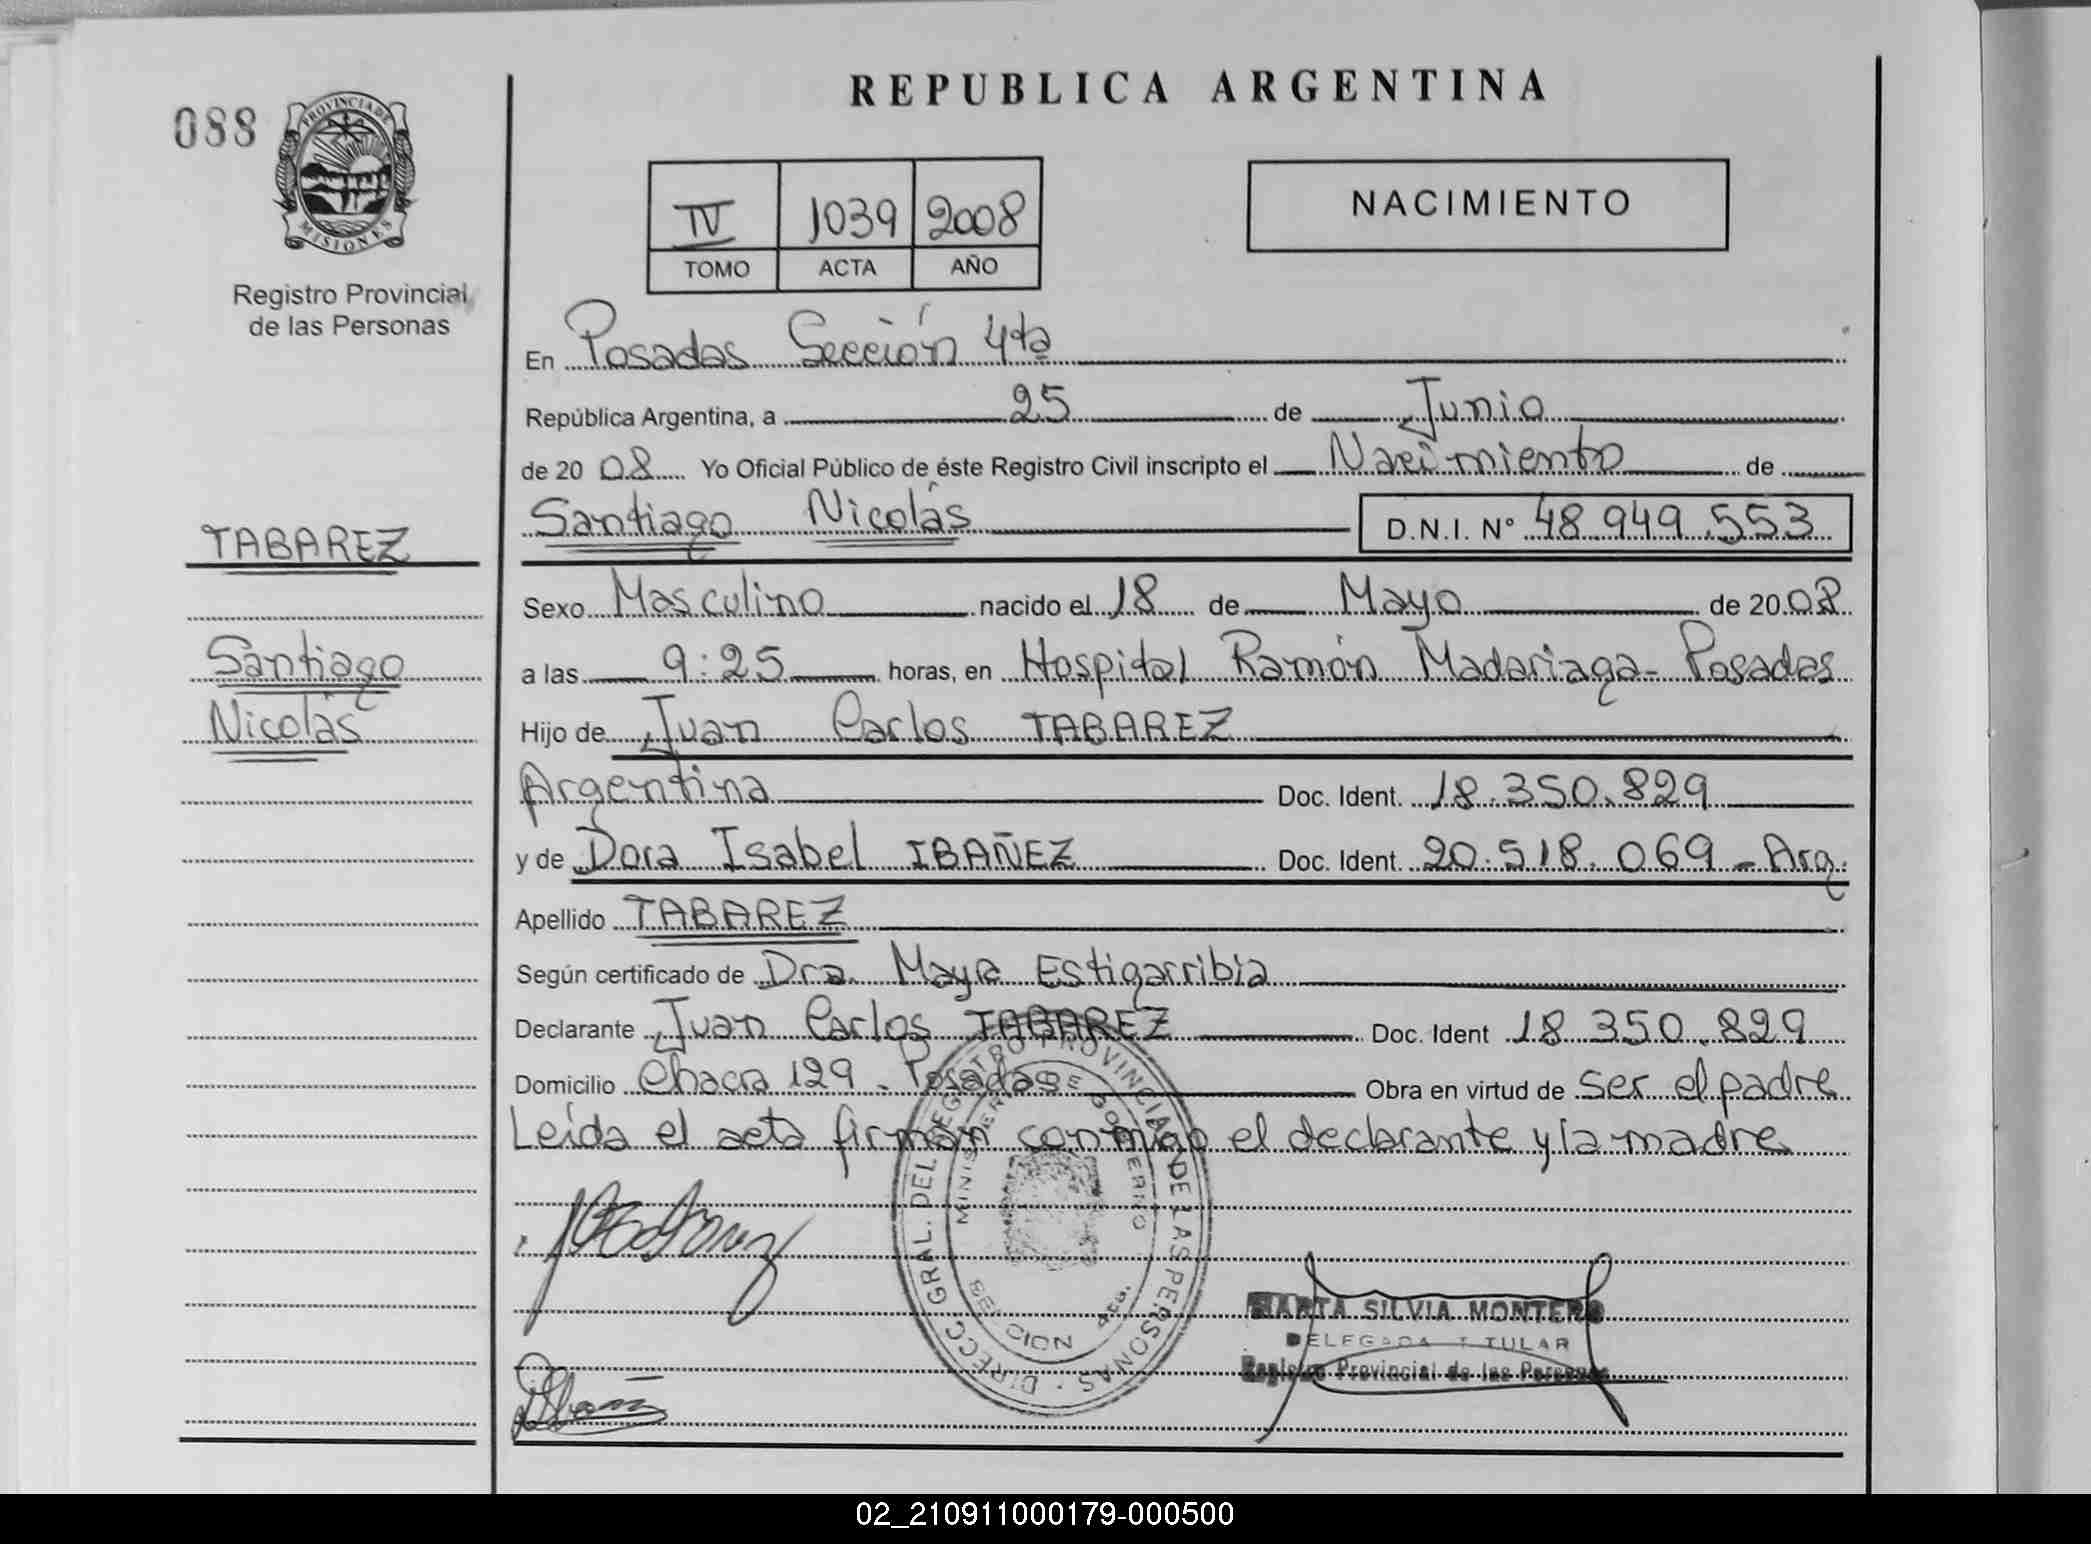 REPUBLICA ARGENTINA
088
PROVINCIA DE
MISIONES
Registro Provincial
de las Personas
IV 1039 2008
TOMO ACTA AÑO
NACIMIENTO
En Posadas Sección 4ta
República Argentina, a 25 de Junio
de 2008 Yo Oficial Público de éste Registro Civil inscripto el Nacimiento de
Santiago Nicolás D.N.I. N° 48.949.553
TABAREZ
Santiago
Nicolás
Sexo Masculino nacido el 18 de Mayo de 2008
a las 9:25 horas, en Hospital Ramón Madariaga - Posadas
Hijo de Juan Carlos TABAREZ
Argentina Doc. Ident. 18.350.829
y de Dora Isabel IBAÑEZ Doc. Ident. 20.518.069 - Arg.
Apellido TABAREZ
Según certificado de Dra. Mayra Estigarribia
Declarante Juan Carlos TABAREZ Doc. Ident 18.350.829
Domicilio Chacra 129 - Posadas Obra en virtud de ser el padre
Leída el acta firman conmigo el declarante y la madre
DIRECC. GRAL. DEL REGISTRO PROVINCIAL DE LAS PERSONAS
MINISTERIO DE GOBIERNO
MARTA SILVIA MONTERO
DELEGADA TITULAR
Registro Provincial de las Personas
02_210911000179-000500